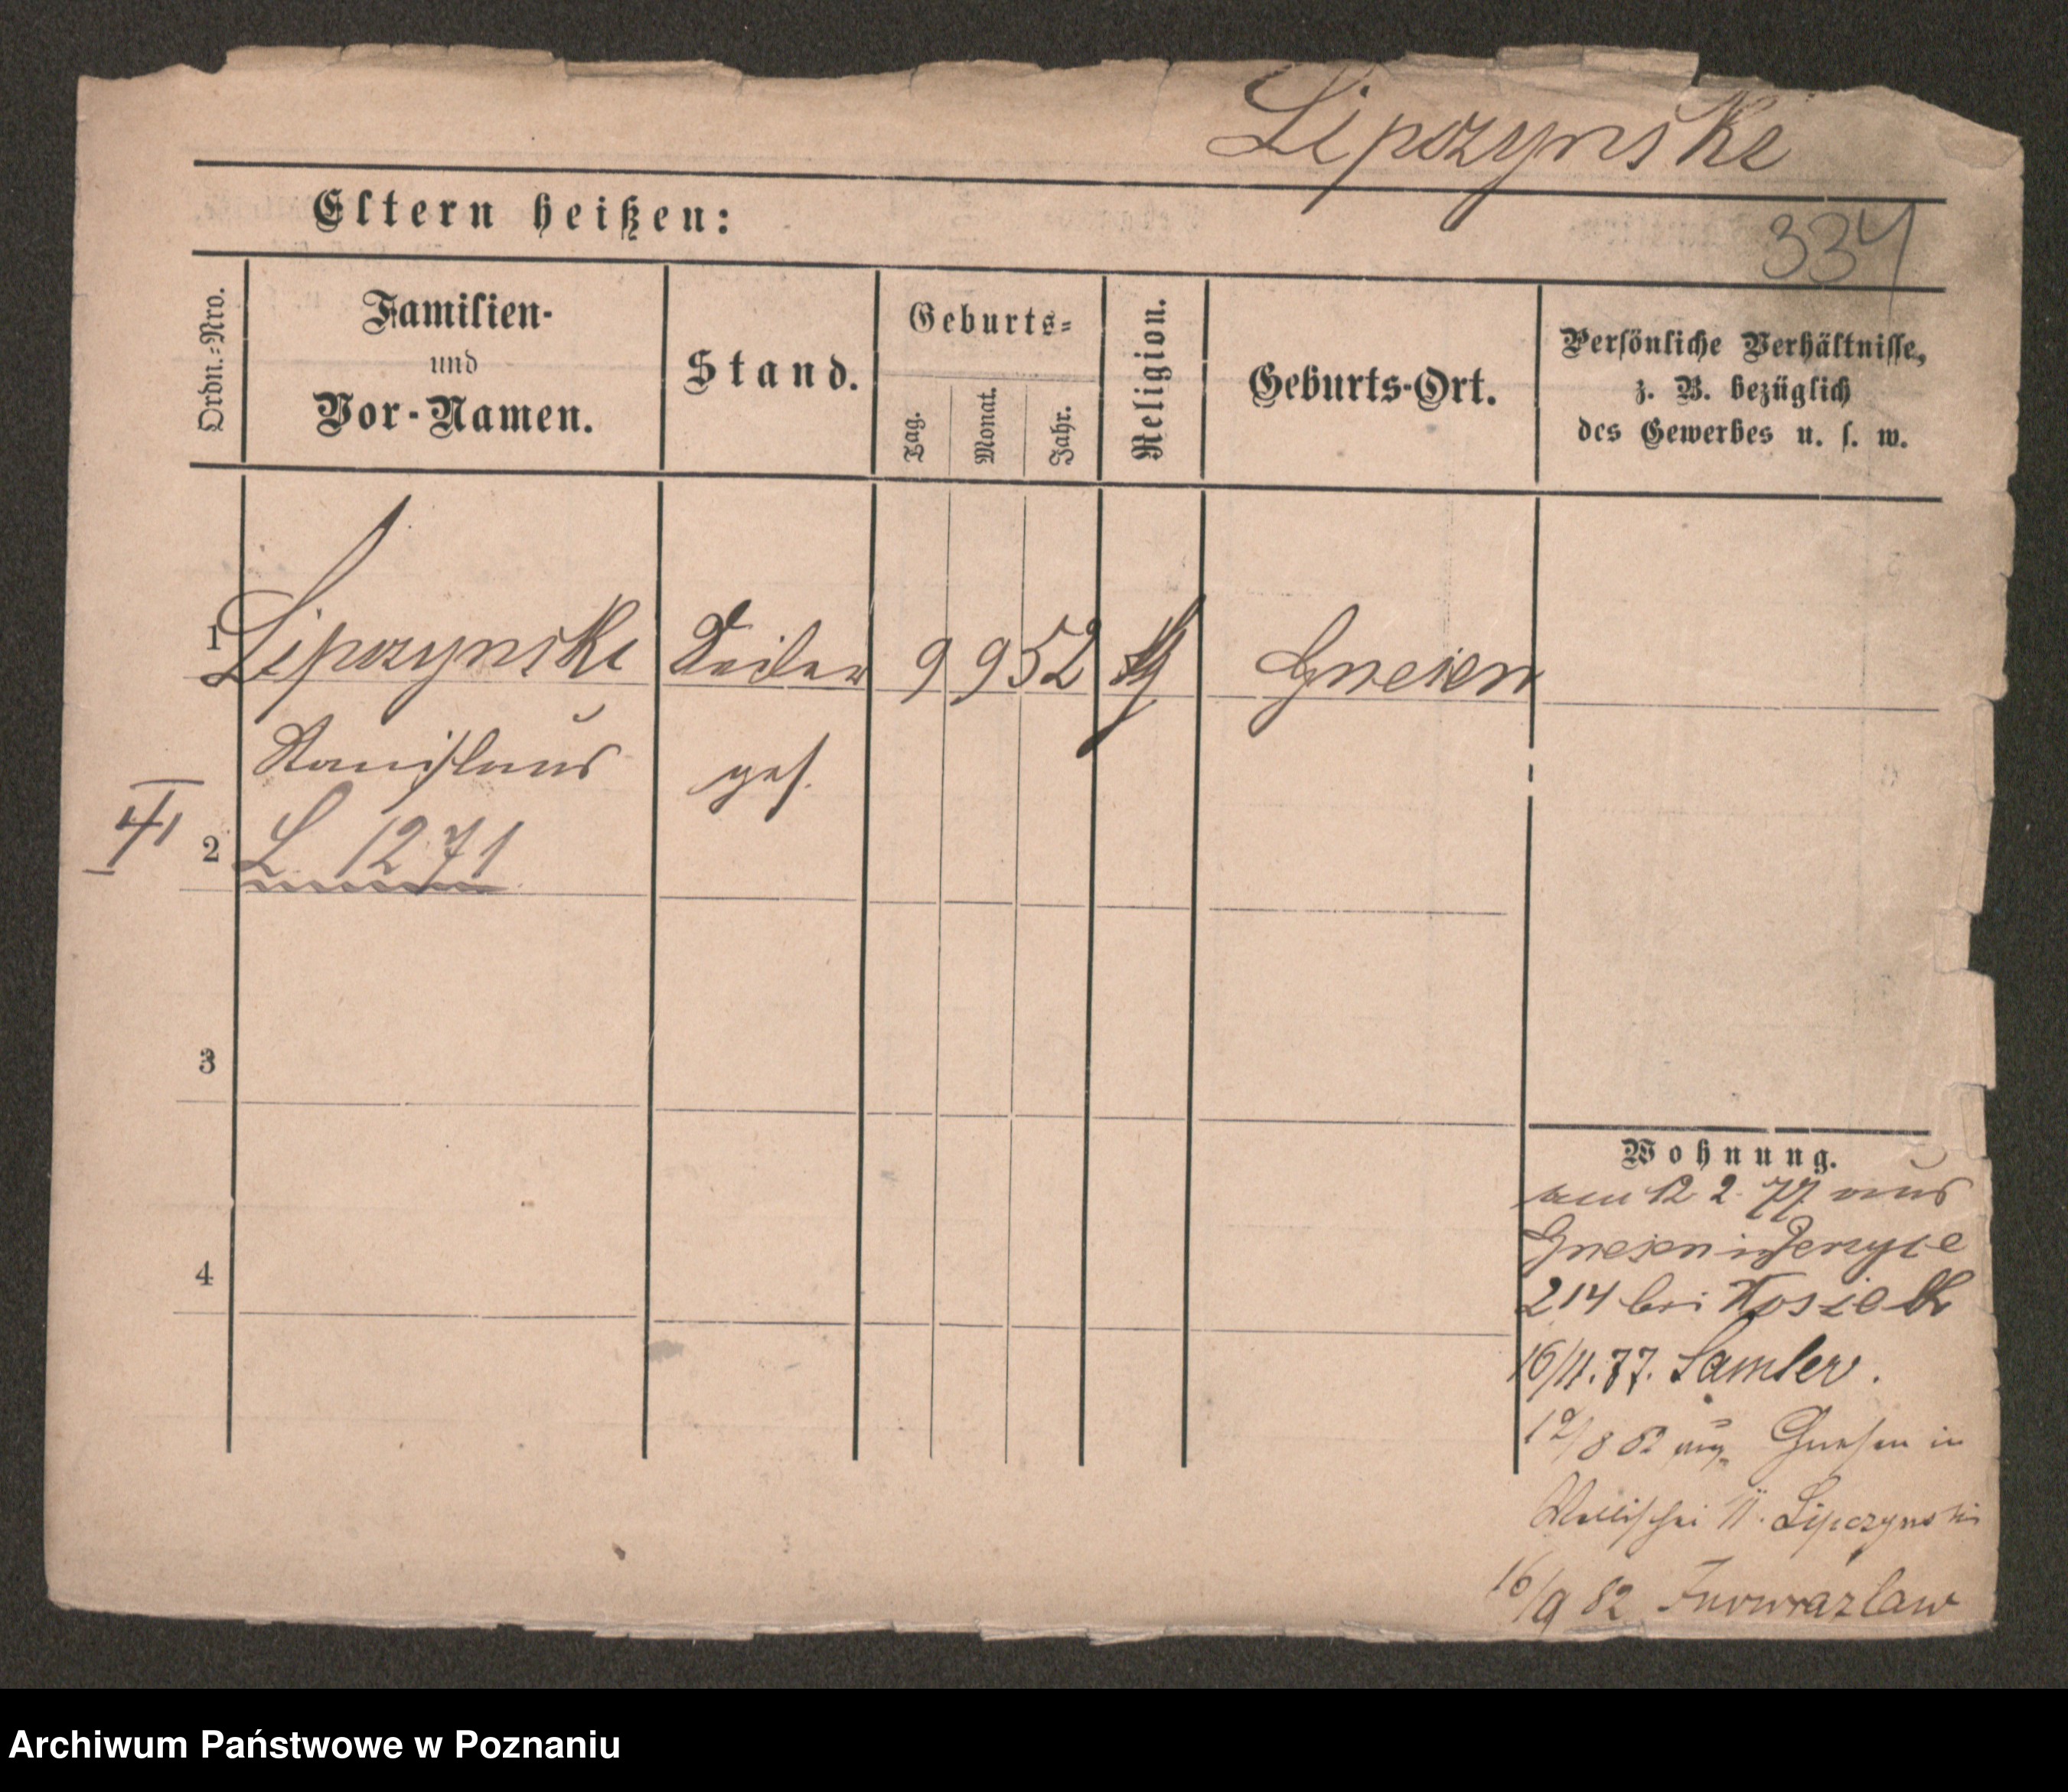 Lipczynski
Eltern heißen:
334
Ordn.-Nro.
Familien-
und
Vor-Namen.
Stand.
Geburts-
Tag.
Monat.
Jahr.
Religion.
Geburts-Ort.
Persönliche Verhältnisse,
z. B. bezüglich
des Gewerbes u. s. w.
1 Lipczynski 9 9 52 Gnesen
Stanislaus ges.
2 L. 1271
3
4
Wohnung.
am 12 2. 77. aus
Gnesen in Jerzyce
214 bei
16/11. 77. Samter.
12/8 82 aus Gnesen in
Wallischei 11. Lipczynski
16/9 82 Inowrazlaw
Archiwum Państwowe w Poznaniu